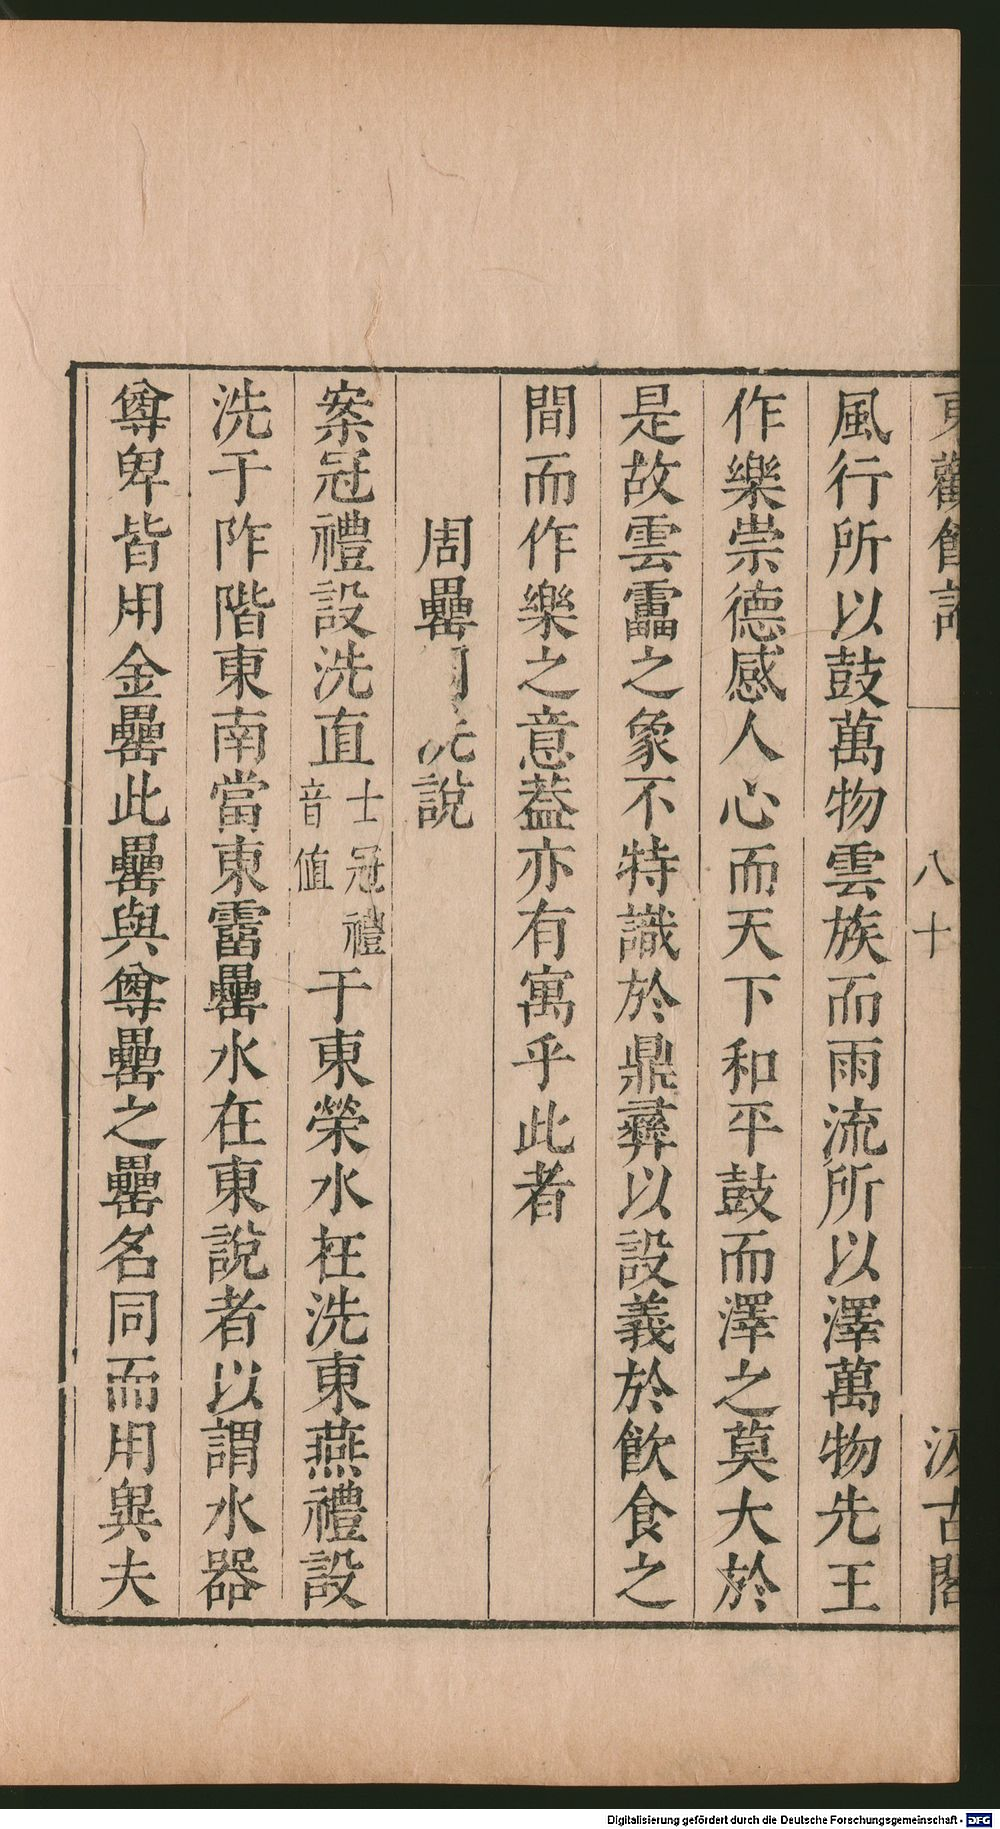 東觀餘論
八十
汲古閣
風行所以鼓萬物雲族而雨流所以澤萬物先王
作樂崇德感人心而天下和平鼓而澤之莫大於
是故雲靁之象不特識於鼎彞以設義於飲食之
間而作樂之意葢亦有寓乎此者
周罍周洗說
案冠禮設洗直士冠禮音值于東榮水在洗東燕禮設
洗于阼階東南當東霤罍水在東說者以謂水器
尊卑皆用金罍此罍與尊罍之罍名同而用異夫
Digitalisierung gefördert durch die Deutsche Forschungsgemeinschaft - DFG